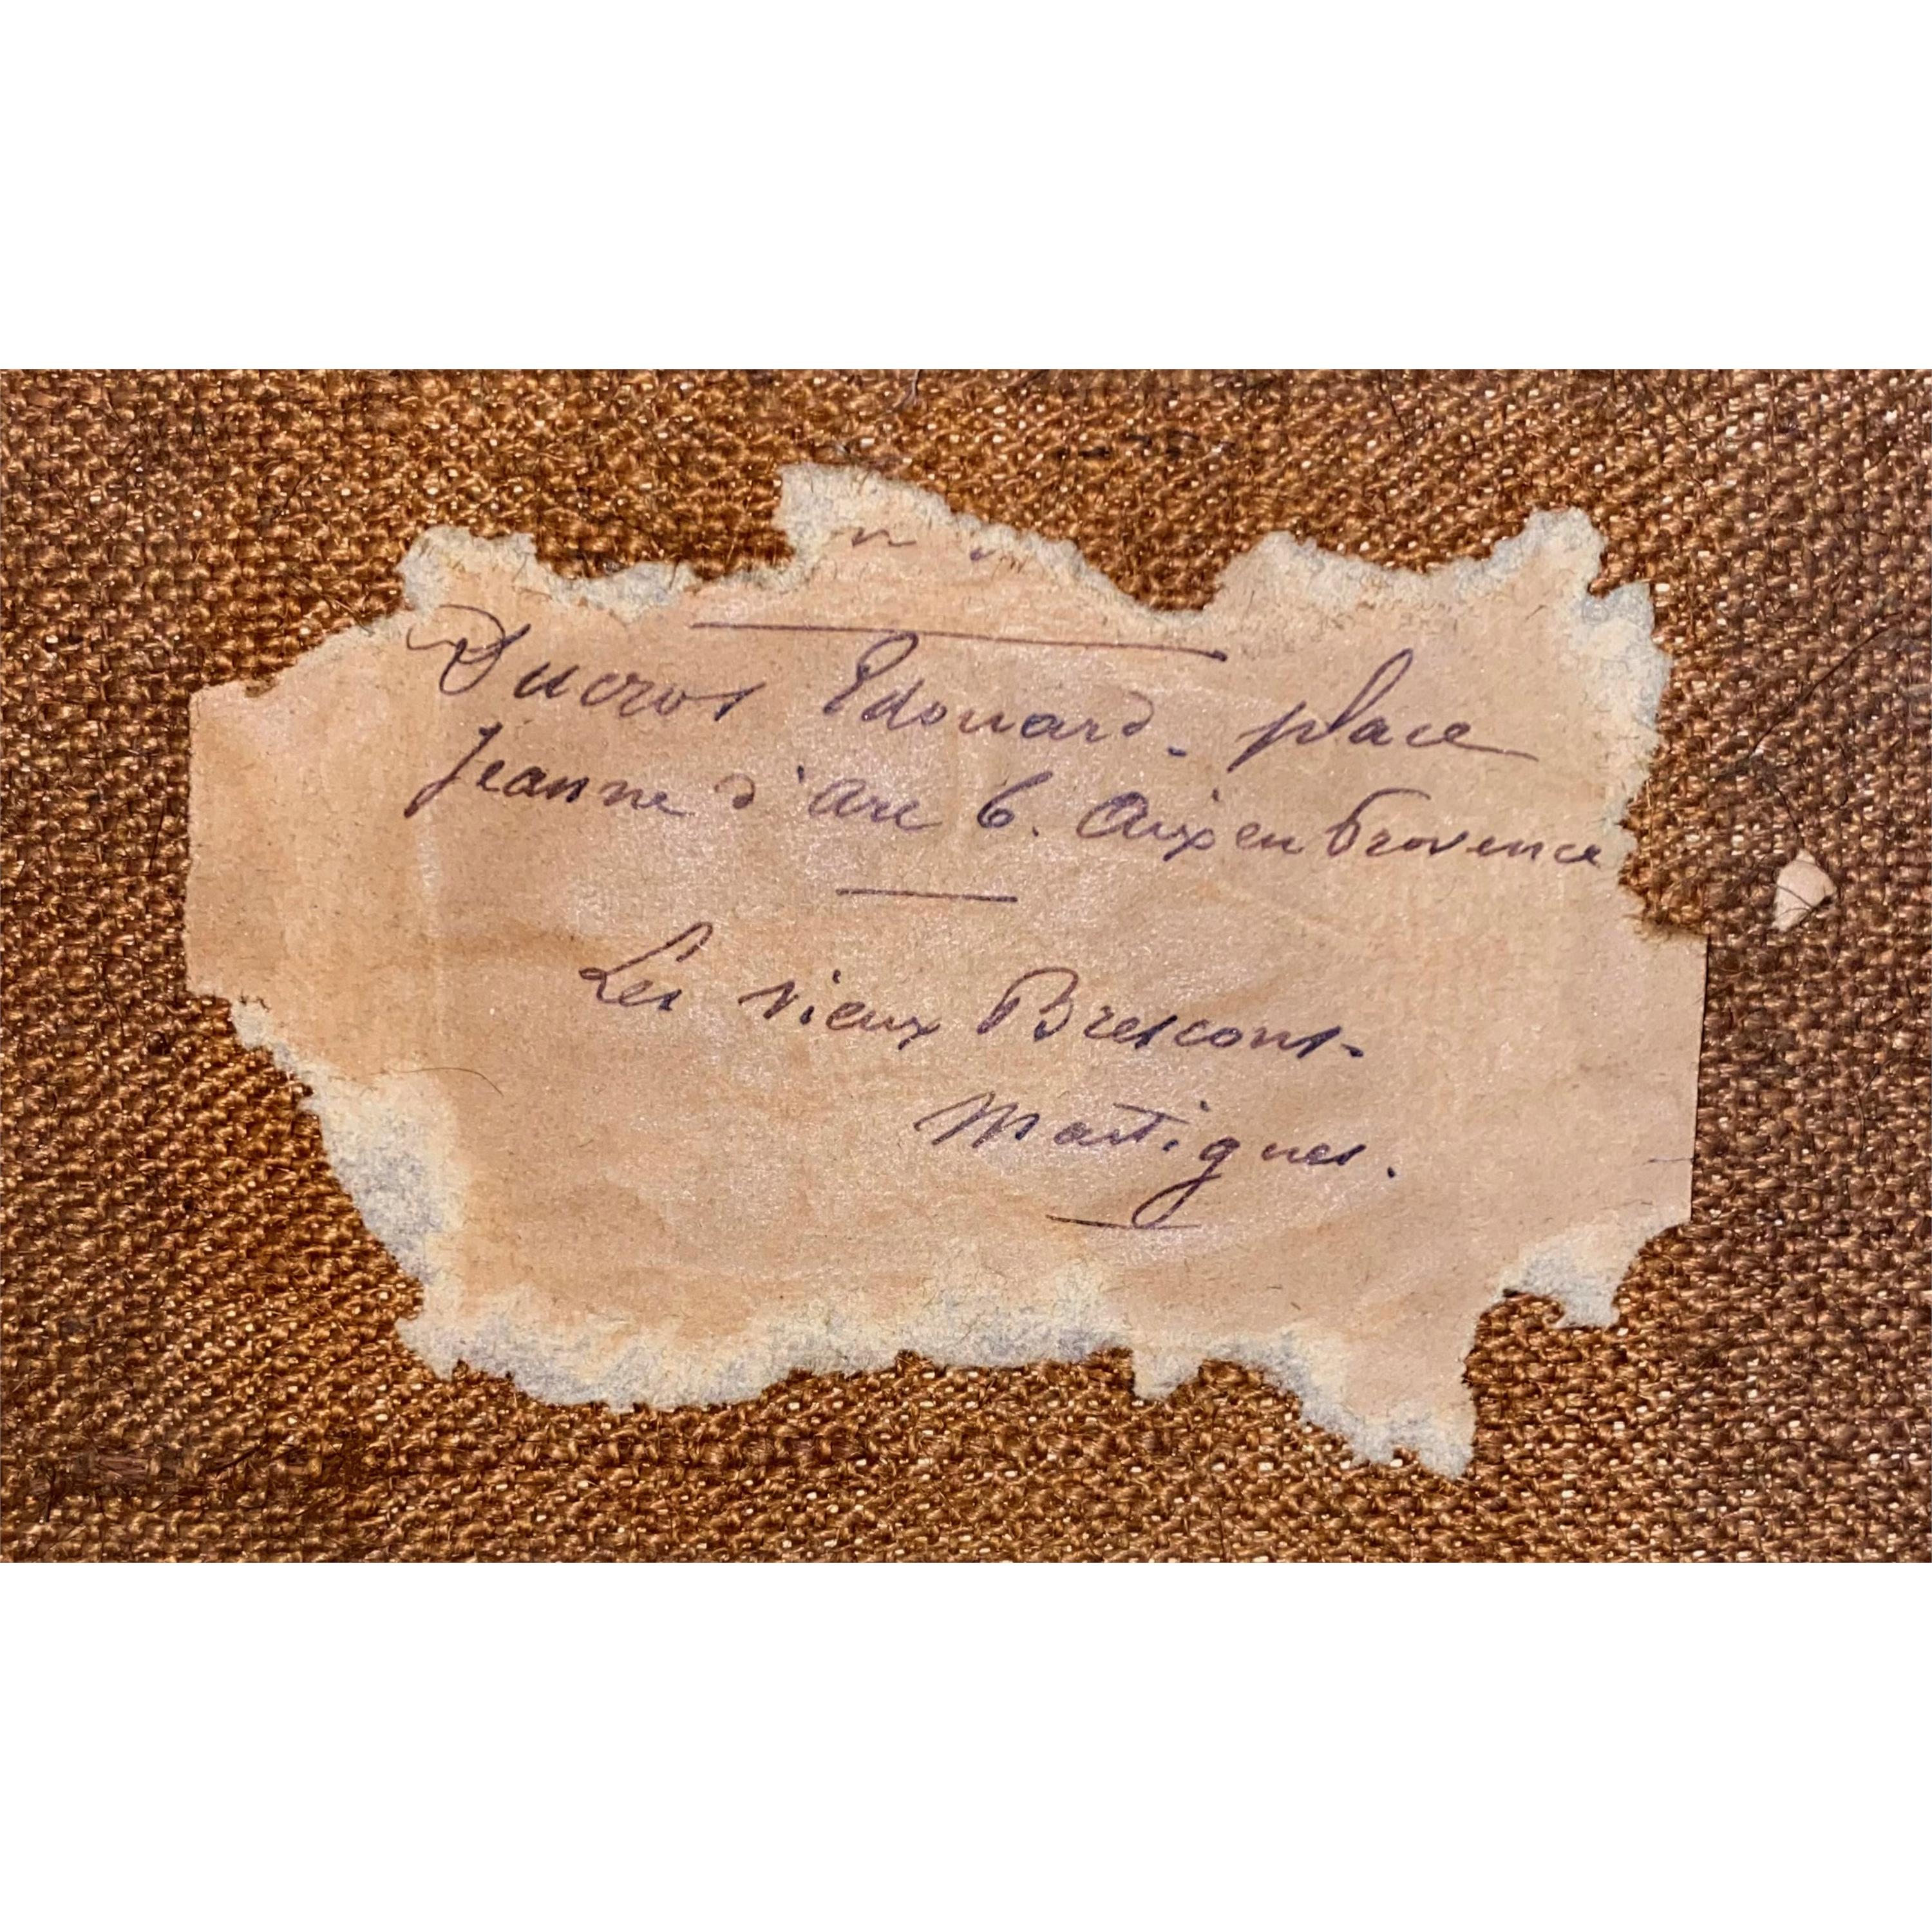 Ducros Edouard - place
Jeanne d'Arc 6. Aix en Provence
Les vieux Brescons -
Martigues.